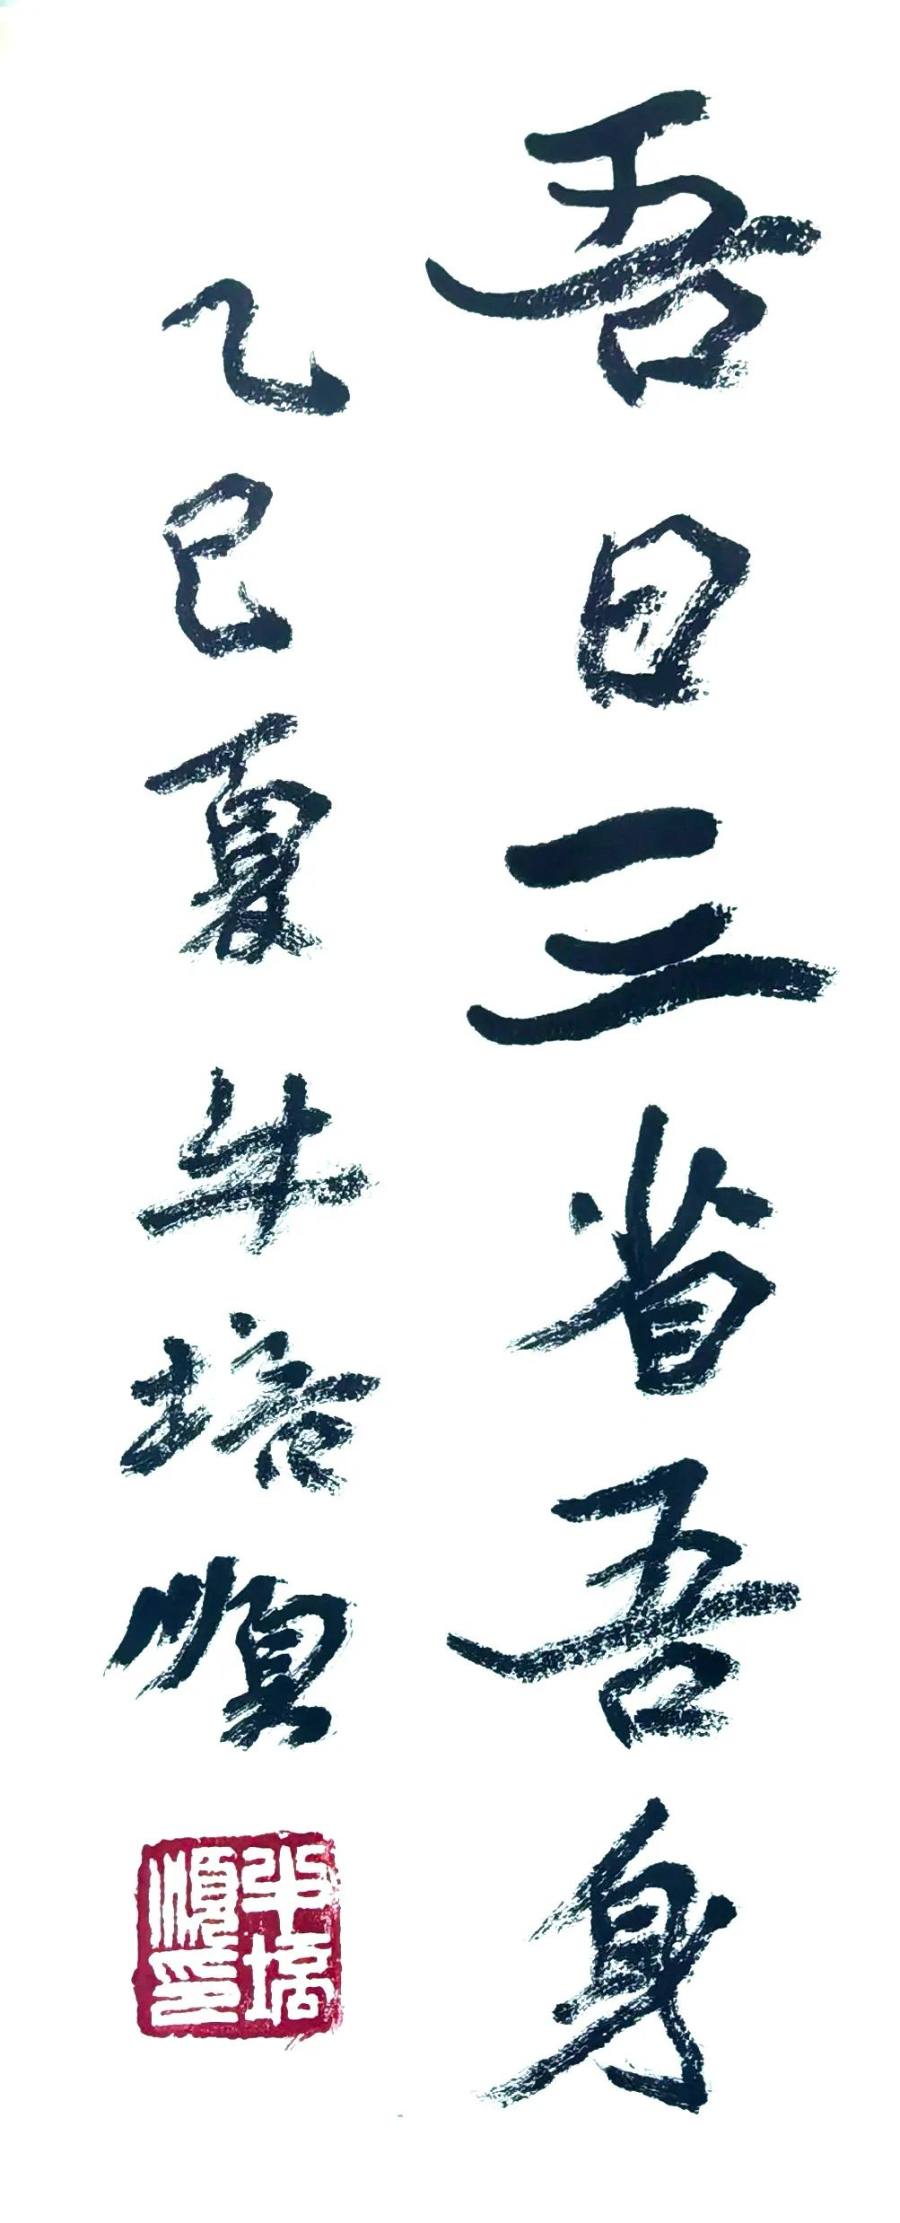 吾日三省吾身
乙巳夏牛培順
牛培
順印